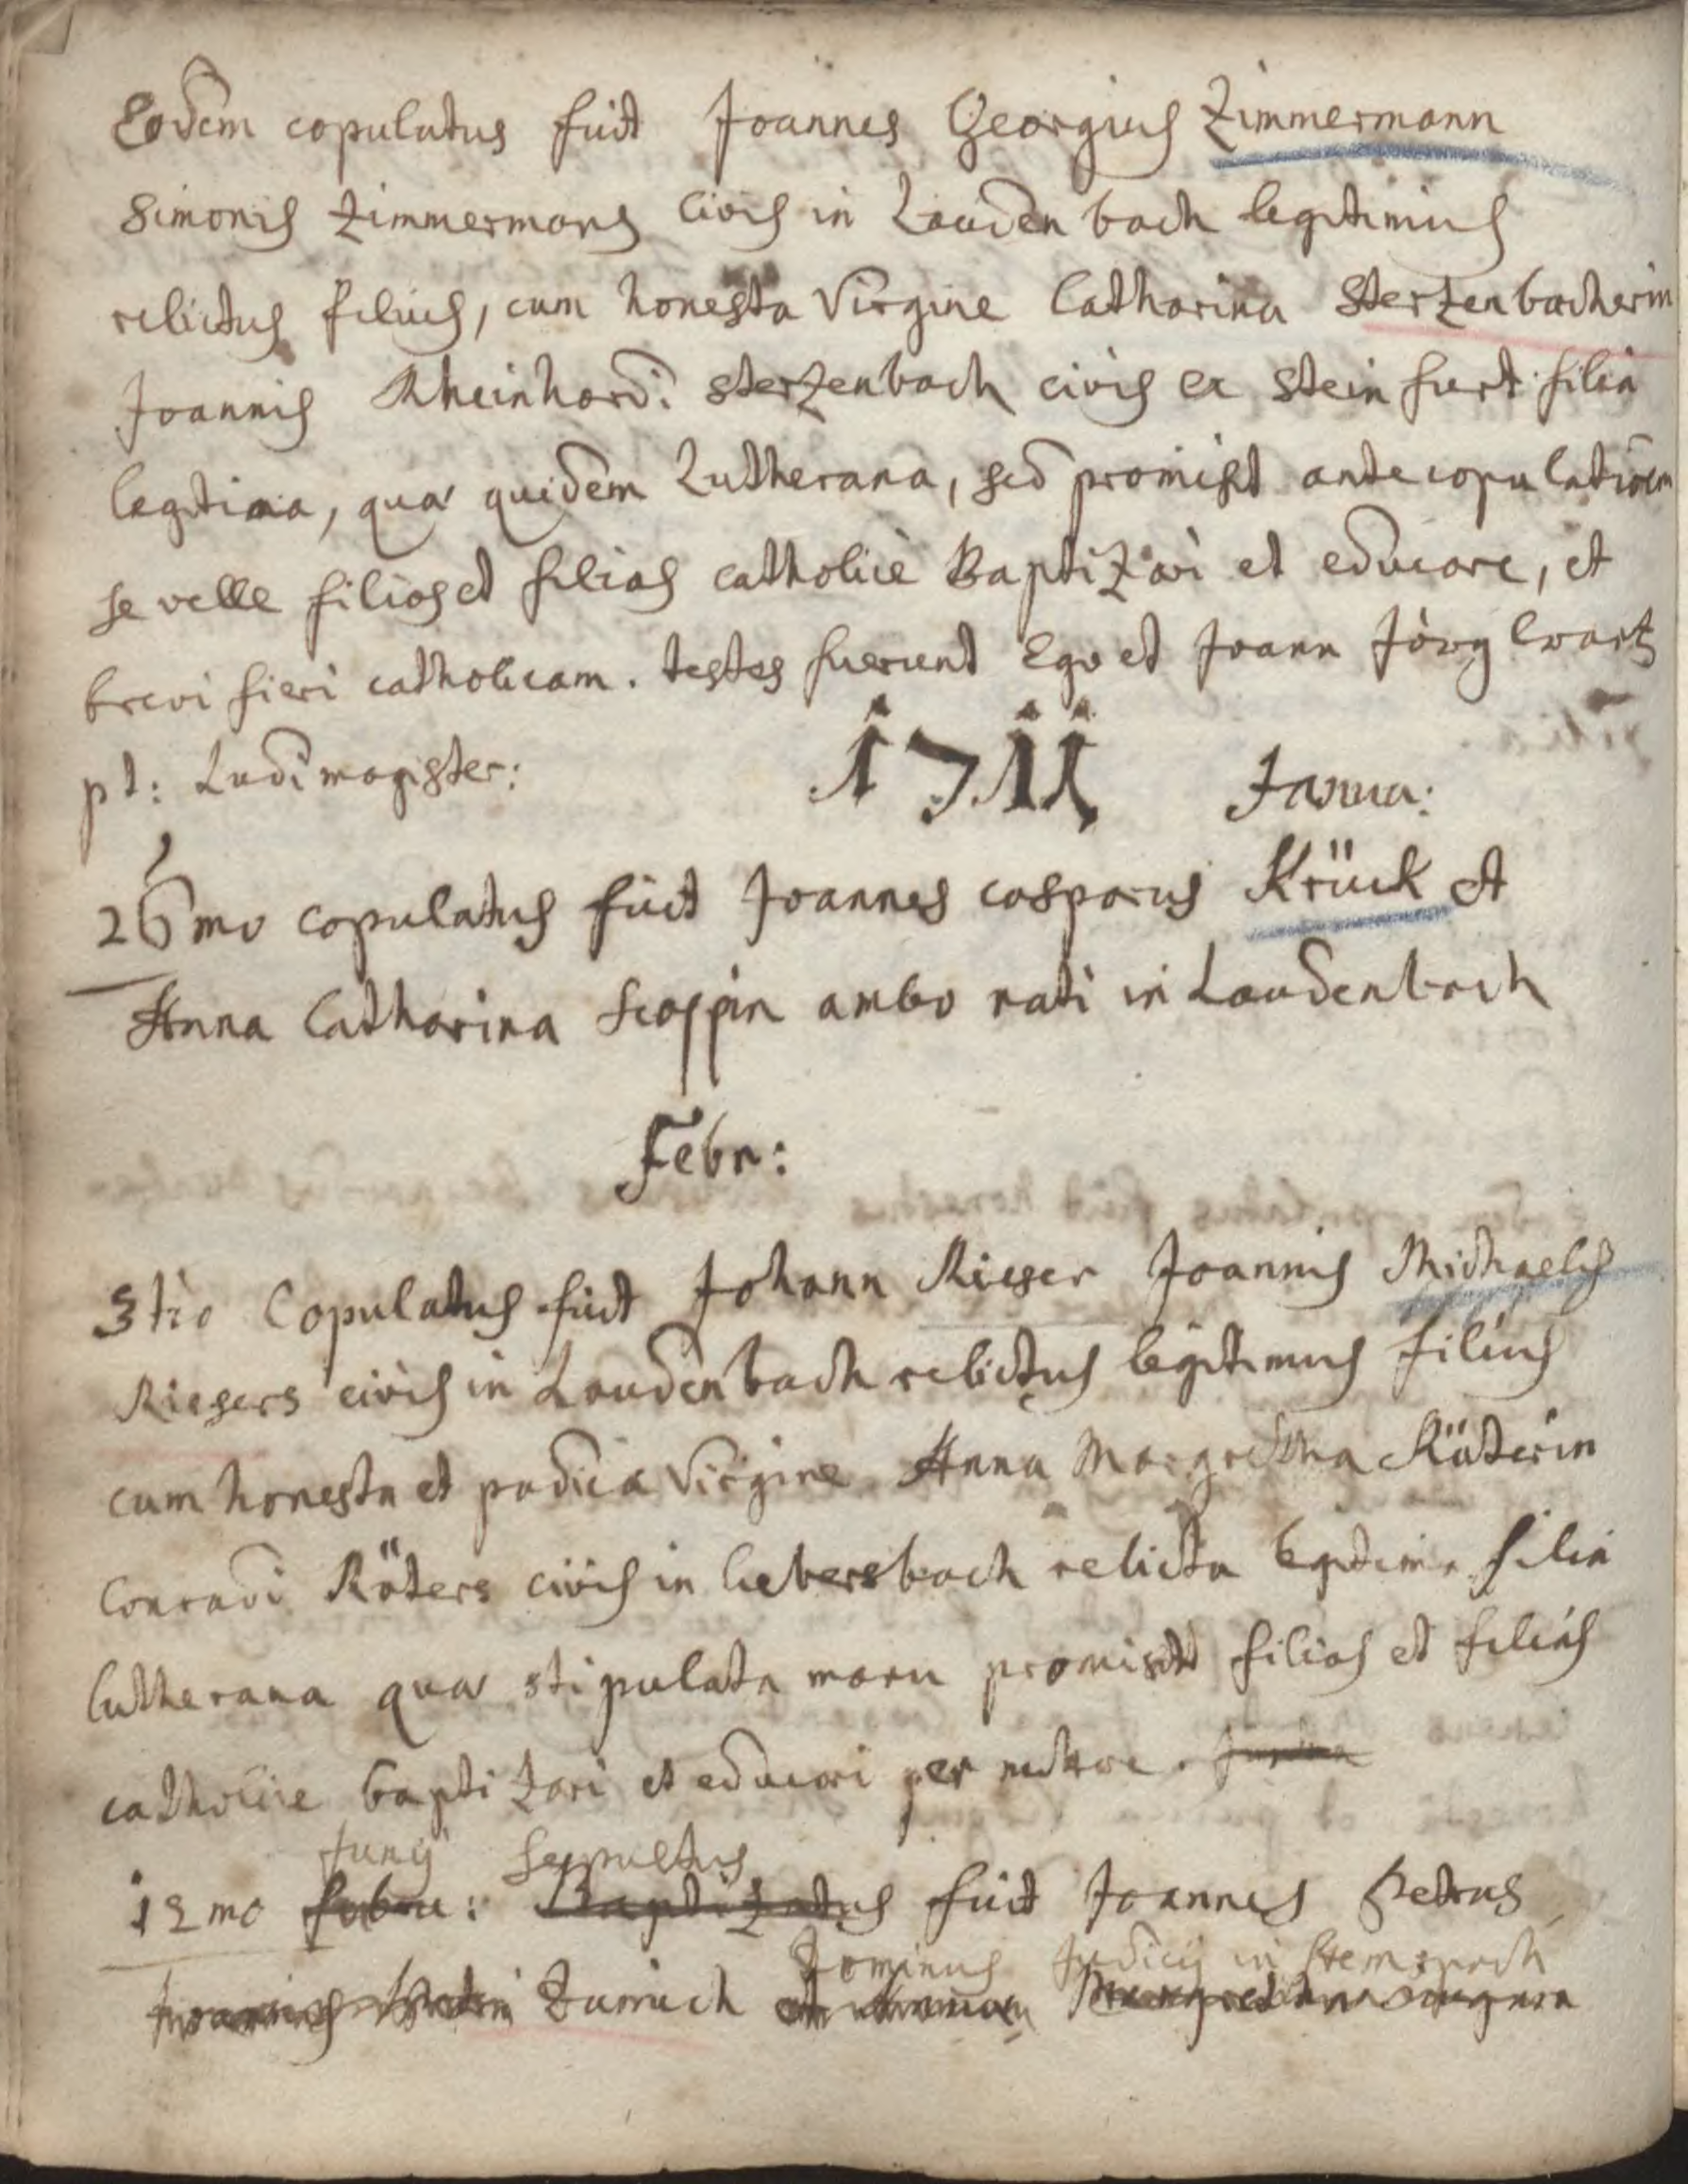 Eodem copulatus fuit Joannes Georgius Zimmermann
Simonis Zimmermans civis in Laudenbach legitimus
relictus filius, cum honesta Virgine Catharina Sterzenbacherin
Joannis Rheinhard: Sterzenbach civis ex Steinfurt filia
legitima, quae quidem Lutherana, sed promisit ante copulationem
se velle filios et filias catholicè Baptizari et educare, et
brevi fieri catholicam. testes fuerunt Ego et Joann Jörg
pt: Ludimagister:
1711 Janua:
26mo copulatus fuit Joannes casparus Krück et
Anna Catharina ambo nati in Laudenbach
Febr:
3tio Copulatus fuit Johann Rieser Joannis Michaelis
Riesers civis in Laudenbach relictus legitimus filius
cum honesta et pudica Virgine Anna Margretha Räterin
Conradi Röters civis in liebersbach relicta legitima filia
lutherana quae stipulata manu promisit filios et filias
catholice baptizari et educari permittere.
Junij Sepultus
12mo febru: Baptizatus fuit Joannes Petrus
Dominus Judicij in Hemspach
Joannis Petri Zunich et Annae Margretha